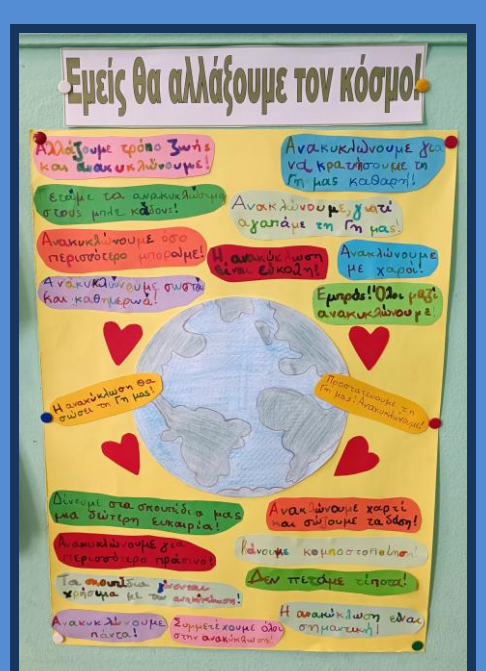 Εμείς θα αλλάξουμε τον κόσμο!
Αλλάζουμε τρόπο ζωής
και ανακυκλώνουμε!
Ανακυκλώνουμε για
να κρατήσουμε τη
Γη μας καθαρή!
Πετάμε τα ανακυκλώσιμα
στους μπλε κάδους!
Ανακυκλώνουμε, γιατί
αγαπάμε τη Γη μας!
Ανακυκλώνουμε όσο
περισσότερο μπορούμε!
Η ανακύκλωση
είναι εύκολη!
Ανακυκλώνουμε
με χαρά!
Ανακυκλώνουμε σωστά
και καθημερινά!
Εμπρός! Όλοι μαζί
ανακυκλώνουμε!
Η ανακύκλωση θα
σώσει τη Γη μας!
Προστατεύουμε τη
Γη μας! Ανακυκλώνουμε!
Δίνουμε στα σκουπίδια μας
μια δεύτερη ευκαιρία!
Ανακυκλώνουμε χαρτί
και σώζουμε τα δάση!
Ανακυκλώνουμε για
περισσότερο πράσινο!
Κάνουμε κομποστοποίηση!
Τα σκουπίδια γίνονται
χρήσιμα με την ανακύκλωση!
Δεν πετάμε τίποτα!
Ανακυκλώνουμε
πάντα!
Συμμετέχουμε όλοι
στην ανακύκλωση!
Η ανακύκλωση είναι
σημαντική!